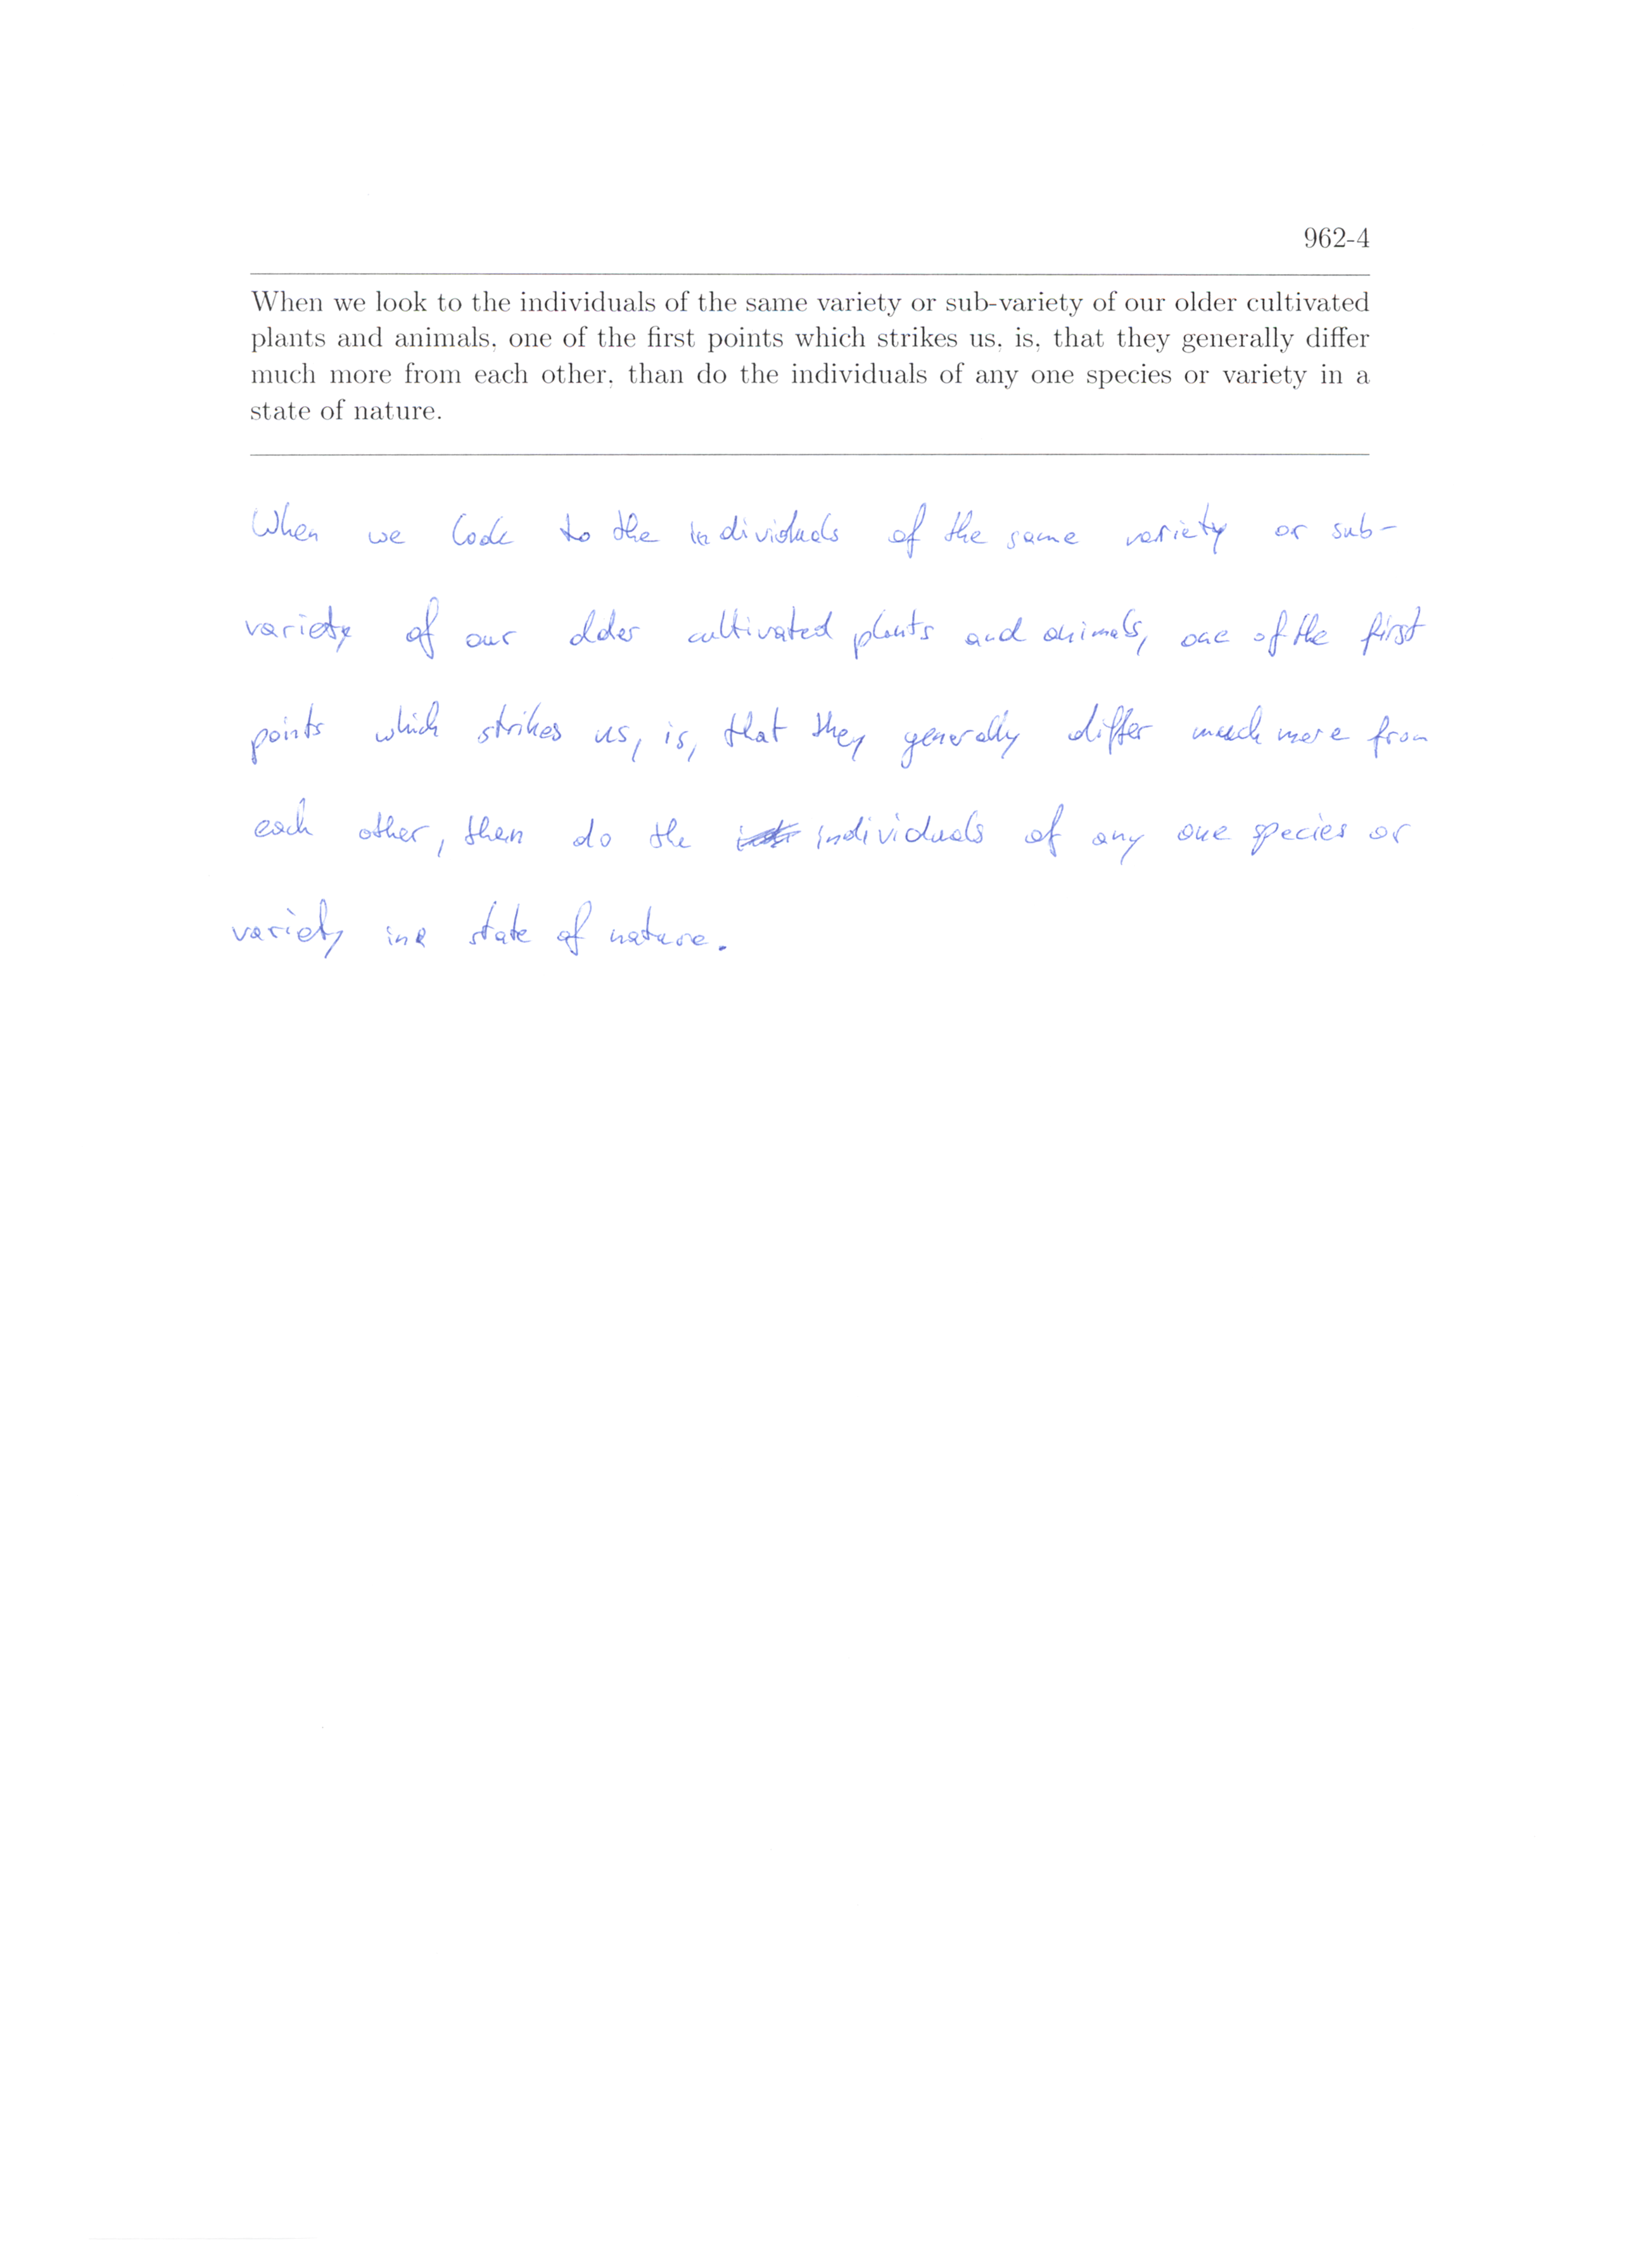 962-4
When we look to the individuals of the same variety or sub-variety of our older cultivated
plants and animals, one of the first points which strikes us, is, that they generally differ
much more from each other, than do the individuals of any one species or variety in a
state of nature.
When we look to the individuals of the same variety or sub-
variety of our older cultivated plants and animals, one of the first
points which strikes us, is, that they generally differ much more from
each other, than do the individuals of any one species or
variety in a state of nature.